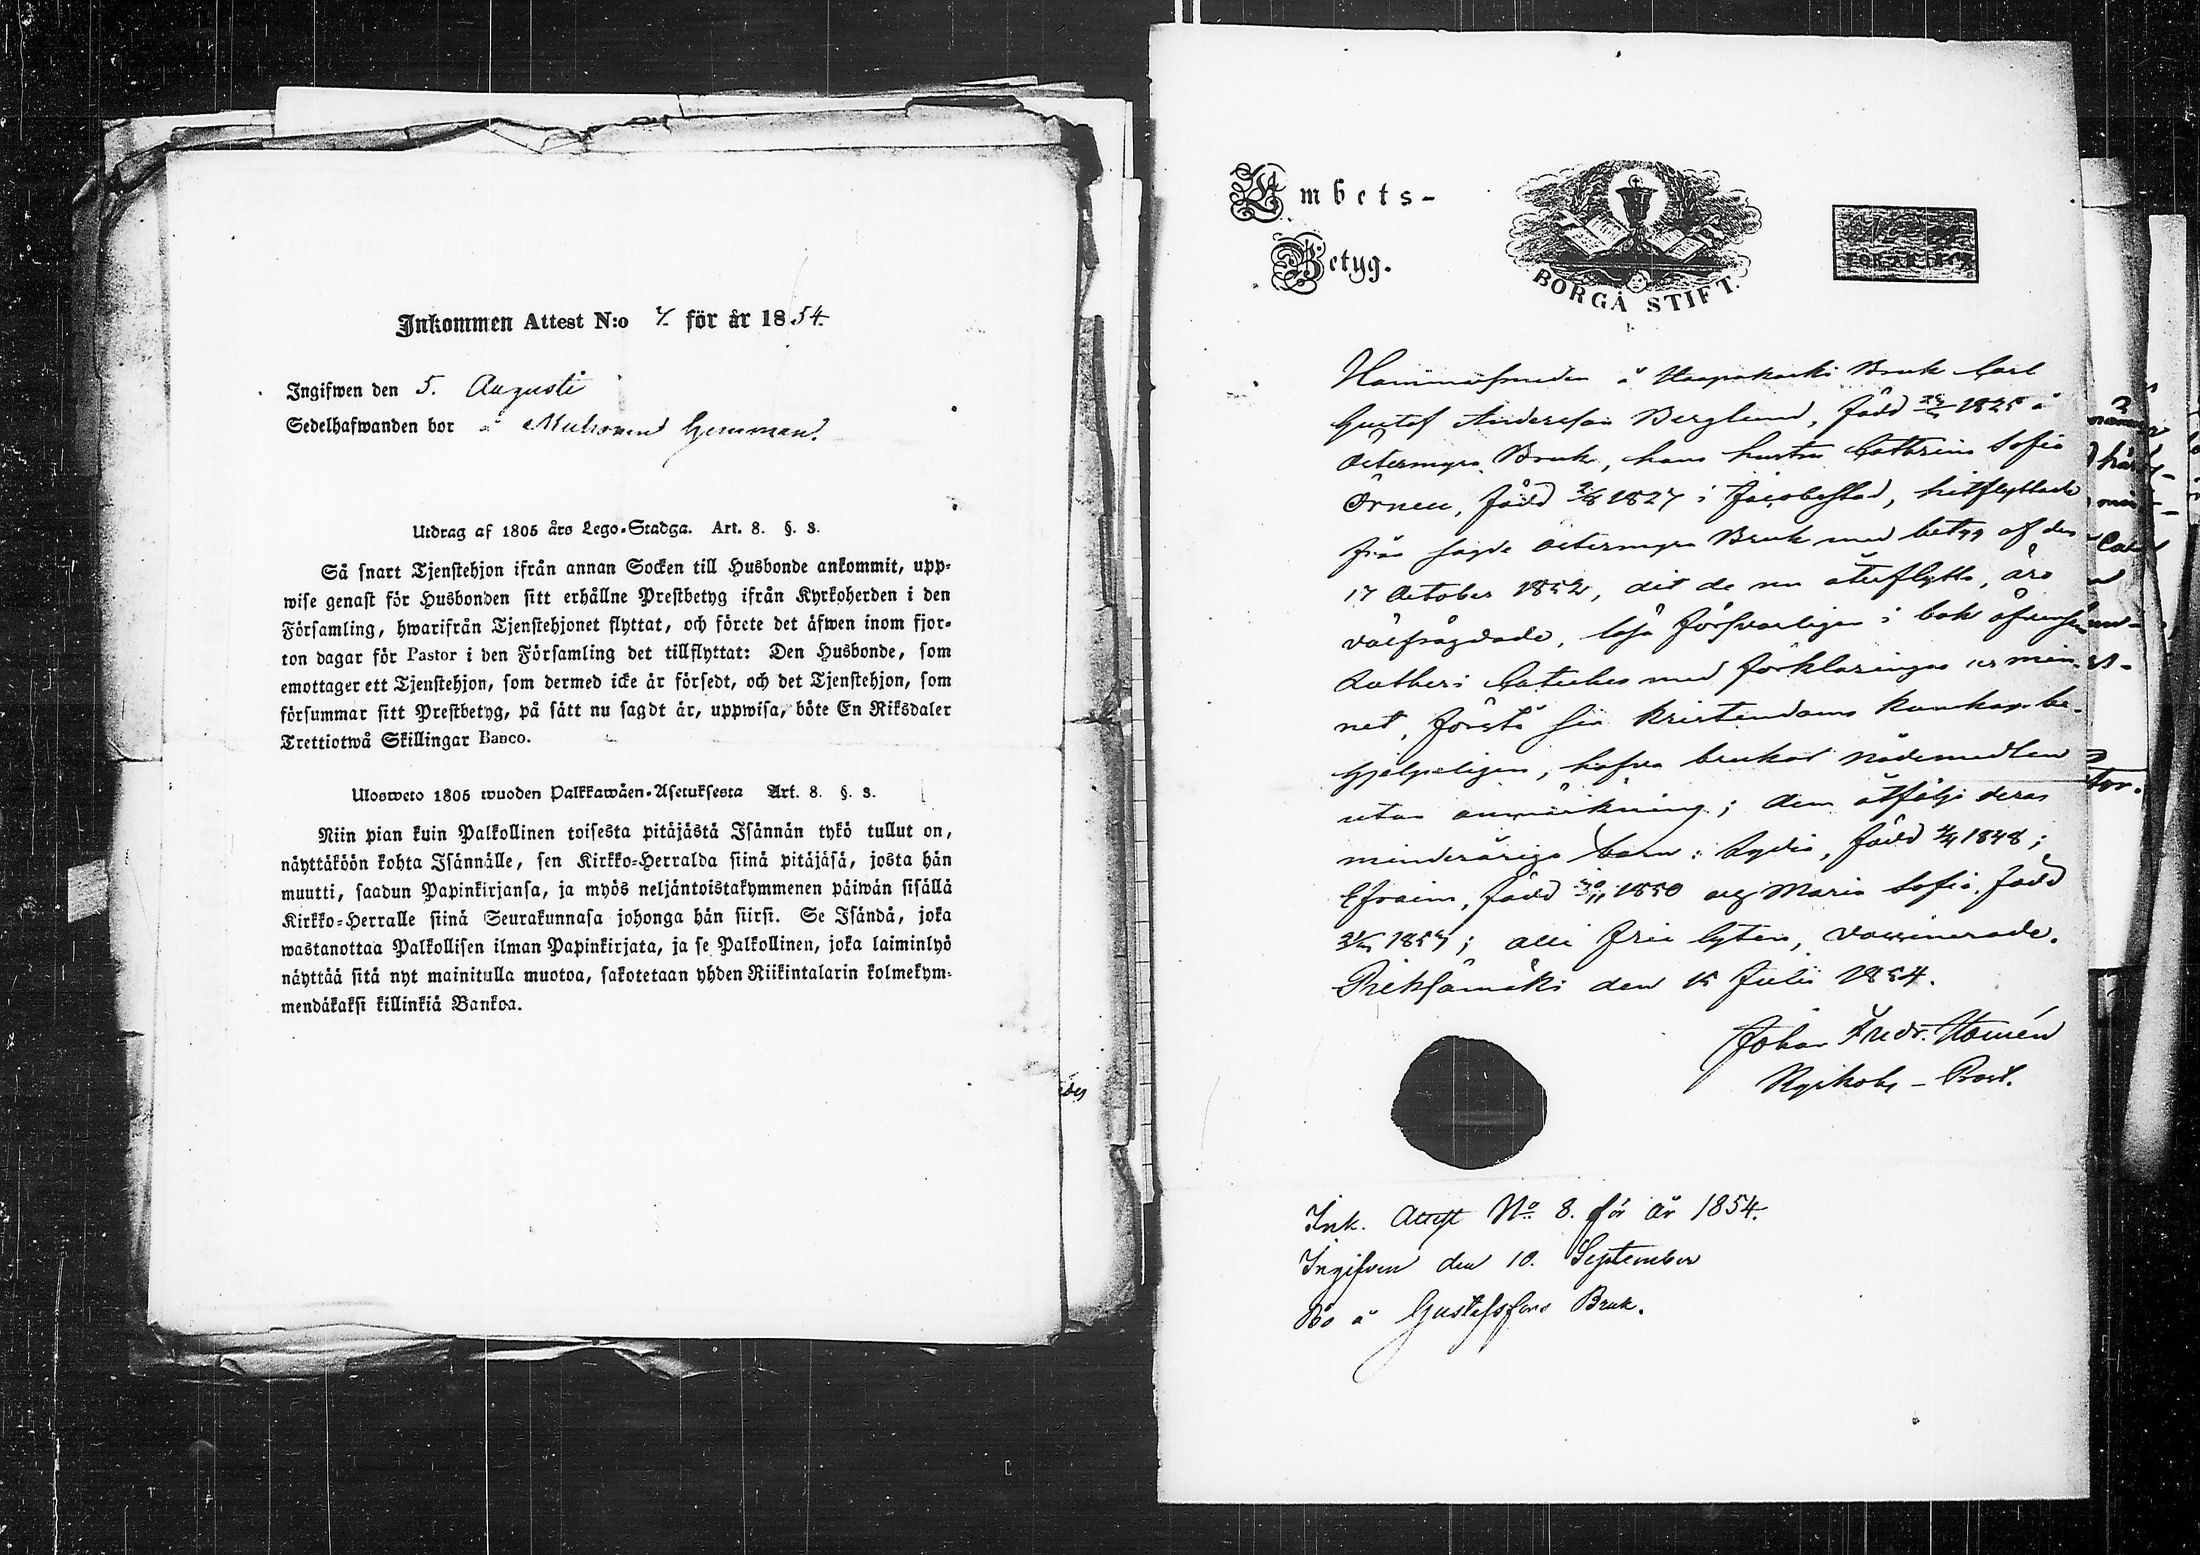 Inkommen Attest N:o 7. för år 1854.
Ingifwen den 5. Augusti
Sedelhafwanden bor å Muhonens Hemman.
Utdrag af 1805 års Lego-Stadga. Art. 8. §. 3.
Så snart Tjenstehjon ifrån annan Socken till Husbonde ankommit, upp-
wise genast för Husbonden sitt erhållne Prestbetyg ifrån Kyrkoherden i den
Församling, hwarifrån Tjenstehjonet flyttat, och förete det äfwen inom fjor-
ton dagar för Pastor i den Församling det tillflyttat: Den Husbonde, som
emottager ett Tjenstehjon, som dermed icke är försedt, och det Tjenstehjon, som
försummar sitt Prestbetyg, på sätt nu sagdt är, uppwisa, böte En Riksdaler
Trettiotwå Skillingar Banco.
Ulosweto 1805 wuoden Palkkawäen-Asetuksesta Art. 8. §. 3.
Niin pian kuin Palkollinen toisesta pitäjästä Isännän tykö tullut on,
näyttäköön kohta Isännälle, sen Kirkko-Herralda siinä pitäjäsä, josta hän
muutti, saadun Papinkirjansa, ja myös neljäntoistakymmenen päiwän sisällä
Kirkko-Herralle siinä Seurakunnasa johonga hän siirsi. Se Isändä, joka
wastanottaa Palkollisen ilman Papinkirjata, ja se Palkollinen, joka laiminlyö
näyttää sitä nyt mainitulla muotoa, sakotetaan yhden Riikintalarin kolmekym-
mendäkaksi killinkiä Bankoa.
Ambets-
Betyg.
BORGÅ STIFT.
Hammarsmeden å Haapakoski Bruk Carl
Gustaf Andersson Berglund, född 1825 å
Östermyra Bruk, hans hustru Cathrina Sofia
Örnen, född 2/8 1827 i Jacobstad, hitflyttade
från sagde Östermyra Bruk med betyg af den
17 October 1852, dit de nu återflytta, äro
välfrägdade, läsa försvarligen i bok äfvensom
Lutheri Cateches med förklaringar ur min-
net, förstå sin kristendoms kunskap be-
hjelpeligen, hafva brukat nådemedlen
utan anmärkning; dem åtfölja deras
minderåriga barn: Lydia, född 1848;
Efraim, född 30/11 1850 och Maria Sofia, född
185; alla fria lyten, vaccinerade.
Pieksämäki den 15 Julii 1854.
Johan Fredr. Homén
Kyrkoh. - Prost.
Ink. Attest No. 8. för år 1854.
Ingifven den 10. September
Bo å Gustafsfors Bruk.